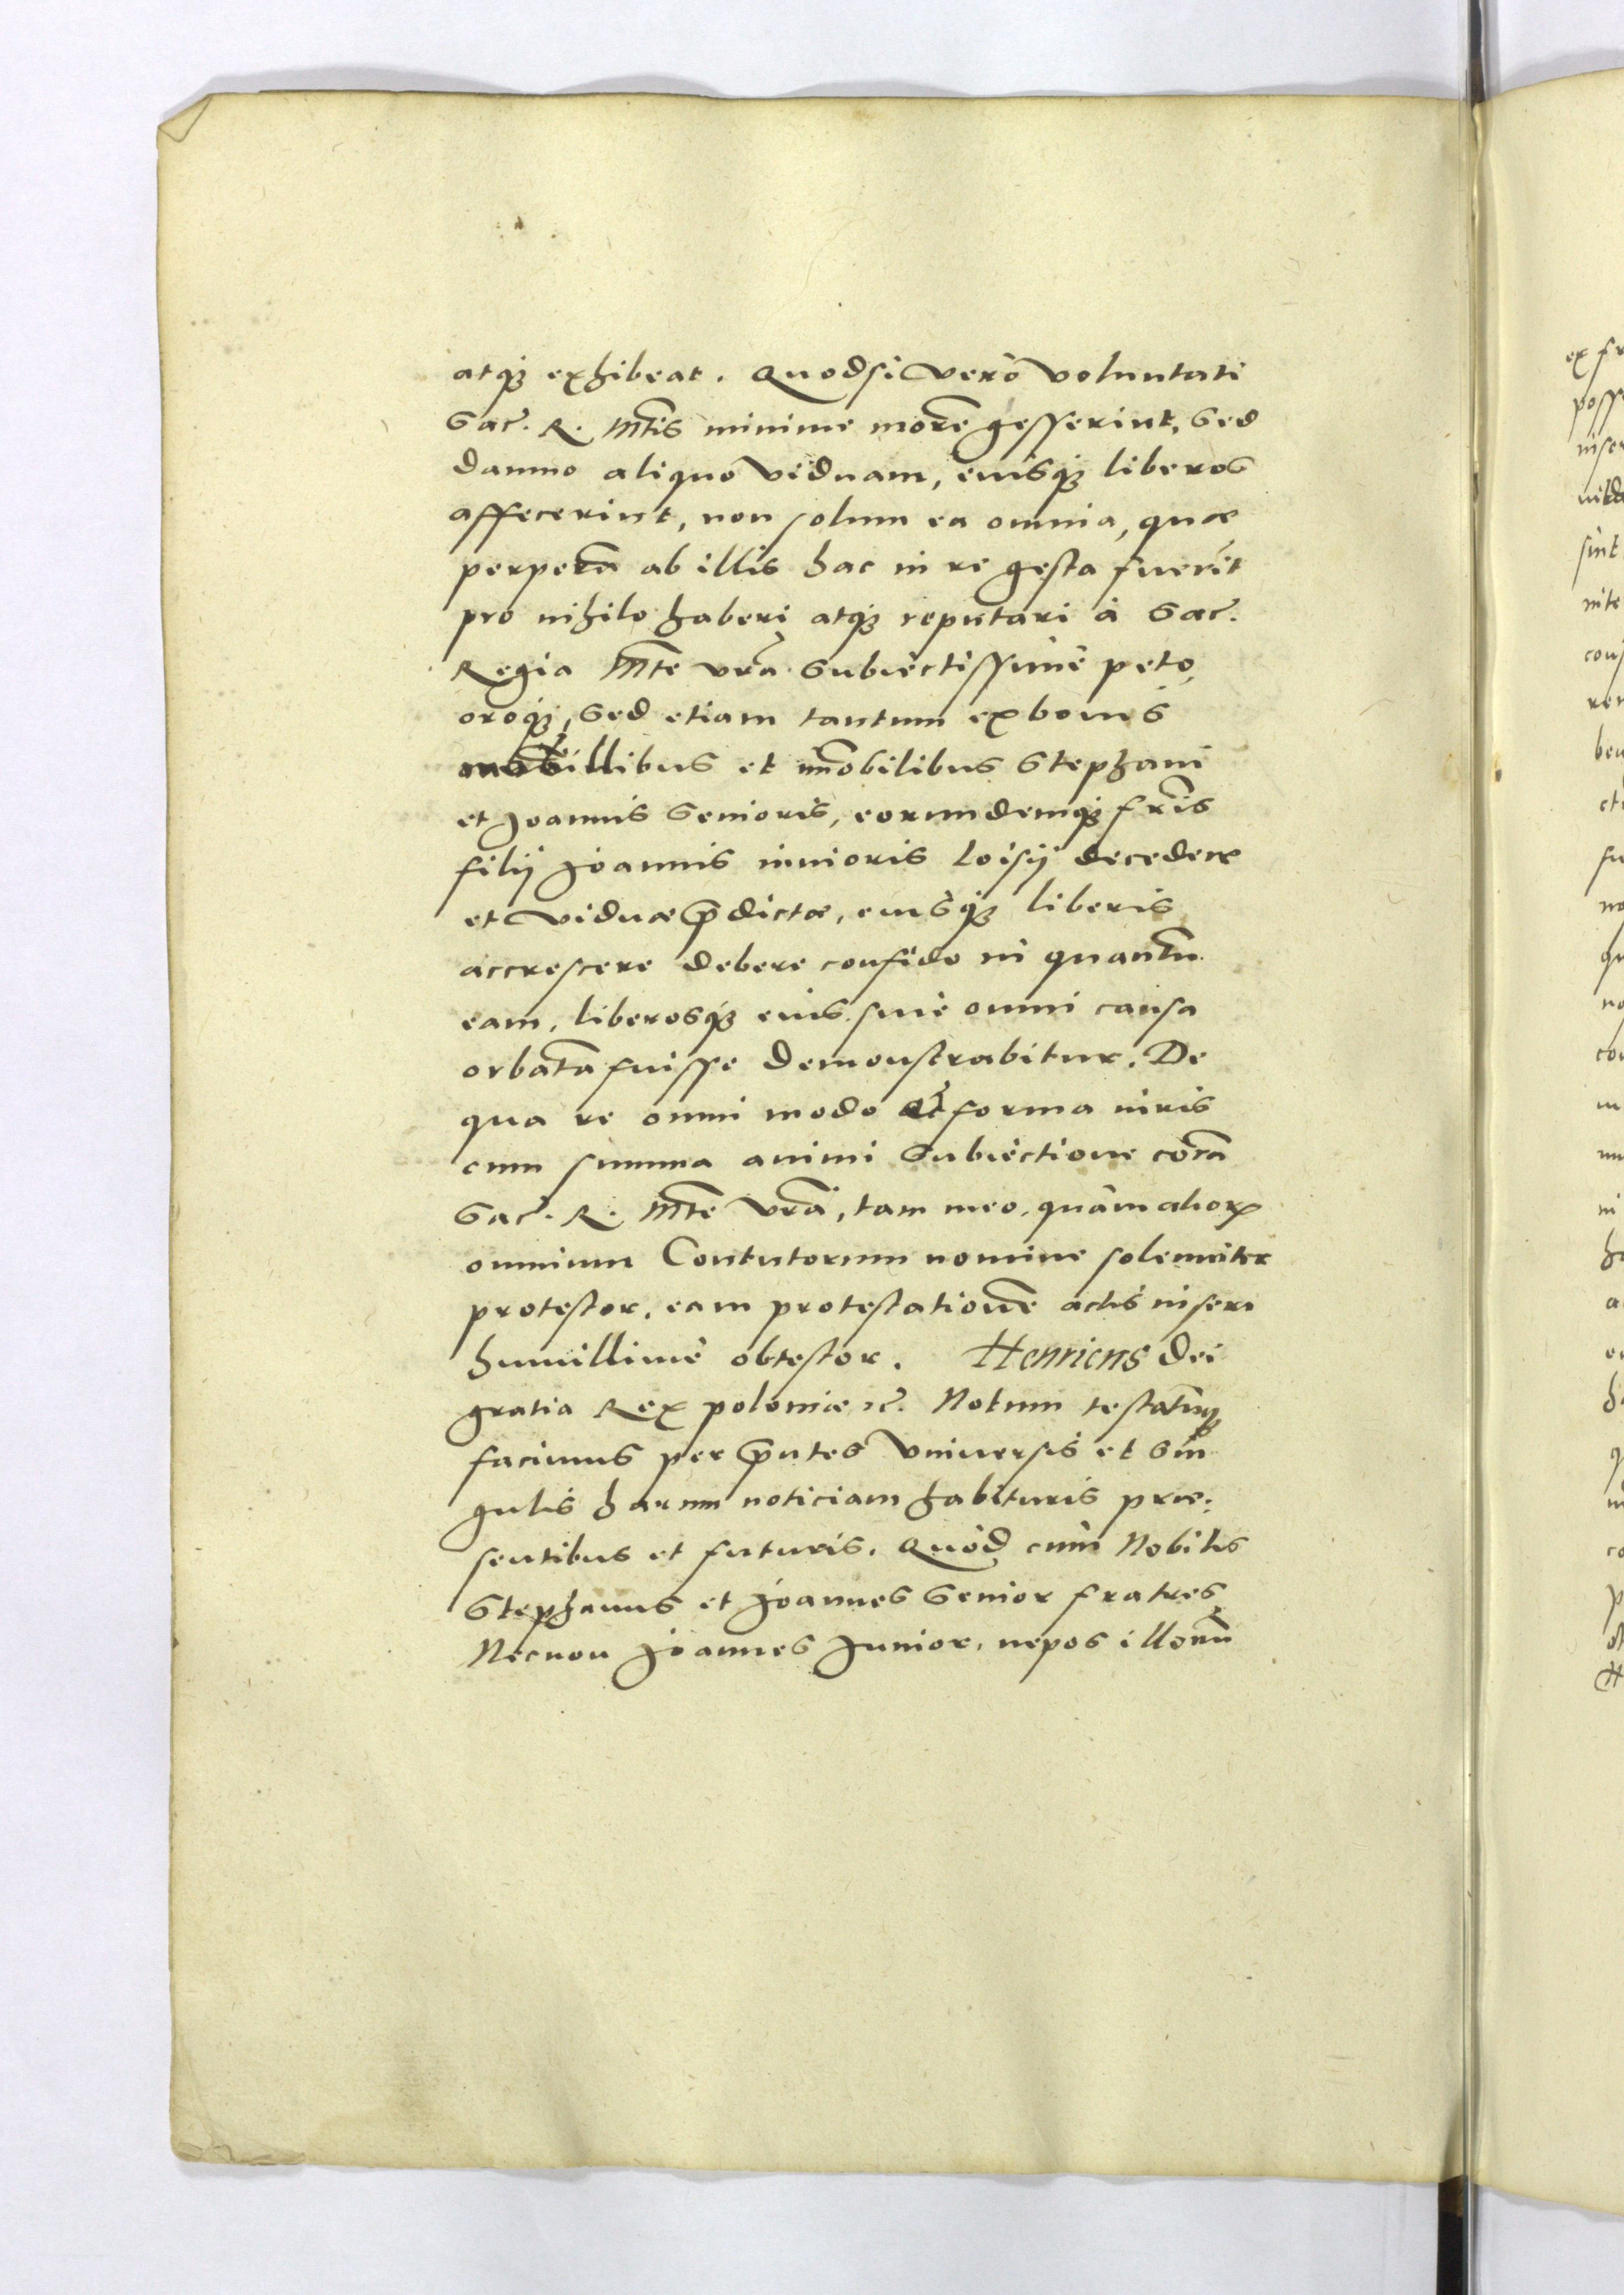 atq₃ exhibeat. Quodsi verò voluntati
Sac̃. R. Mt̃is minime morẽ gesserint, sed
damno aliquo viduam, eiusq₃ liberos
affecerint, non solum ea omnia, quæ
perperã ab illis hac in re gesta fuerĩt
pro nihilo haberi atq₃ reputari à Sac̃.
Regia Mt̃e vrã subiectissimè peto,
oroq₃, sed etiam tantum ex bonis
mobillibus et im̃obilibus Stephani
et Joannis Senioris, eorundemq₃ fr̃is
filij Joannis iunioris Loisij decedere
et viduæ p̃dictæ, eiusq₃ liberis
accrescere debere confido in quantũ
eam, liberosq₃ eius sine omni causa
orbatã fuisse demonstrabitur. De
qua re omni modo et forma iuris
cum summa animi subiectione corã
Sac̃. R. Mt̃e vrã, tam meo, quàm alioꝝ
omnium Contutorum nomine solemniter
protestor, eam protestationẽ actis inseri
humillimè obtestor. Henricus Dei
gratia Rex poloniæ ꝛc̃. Notum testatũq₃
facimus per p̃ntes Vniuersis et sin
gulis harum noticiam habituris præ:
sentibus et futuris. Quòd cùm Nobilis
Stephanus et Joannes Senior fratres
Necnon Joannes Junior, nepos illorũ
ex fr
poss
sint